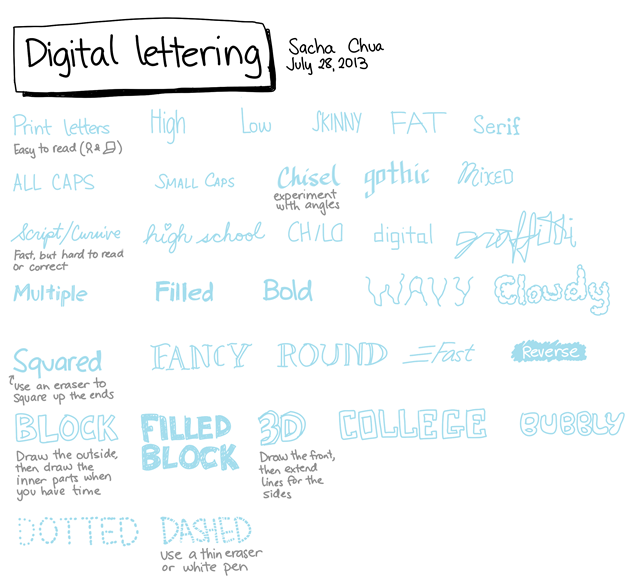 Digital lettering
Sacha Chua
July 28, 2013
Print letters
High
Low
SKINNY
FAT
Serif
Easy to read
ALL CAPS
SMALL CAPS
Chisel
gothic
MIXED
experiment
with angles
Script/Cursive
high school
CHILD
digital
graffitti
Fast, but hard to read
or correct
Multiple
Filled
Bold
WAVY
Cloudy
Squared
FANCY
ROUND
Fast
Reverse
use an eraser to
square up the ends
BLOCK
FILLED
BLOCK
3D
COLLEGE
BUBBLY
Draw the outside,
then draw the
inner parts when
you have time
Draw the front,
then extend
lines for the
sides
DOTTED
DASHED
use a thin eraser
or white pen